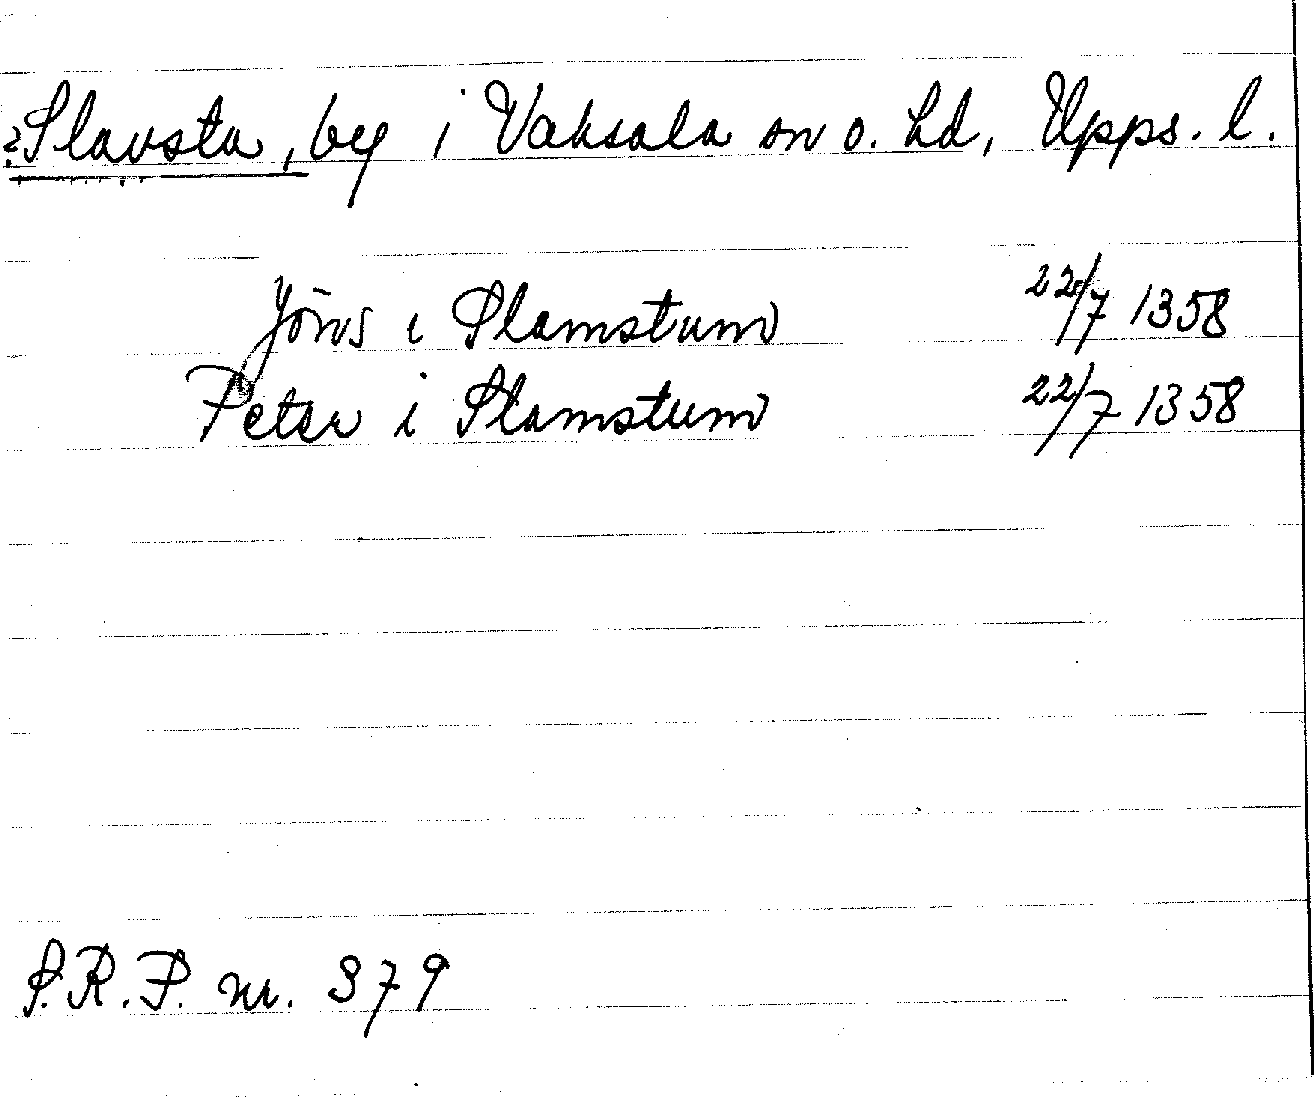 ?Slavsta, by i Vaksala sn o. hd, Upps. l.
Jöns i Slamstum 22/7 1358
Peter i Slamstum 22/7 1358
S.R.P. nr. 379